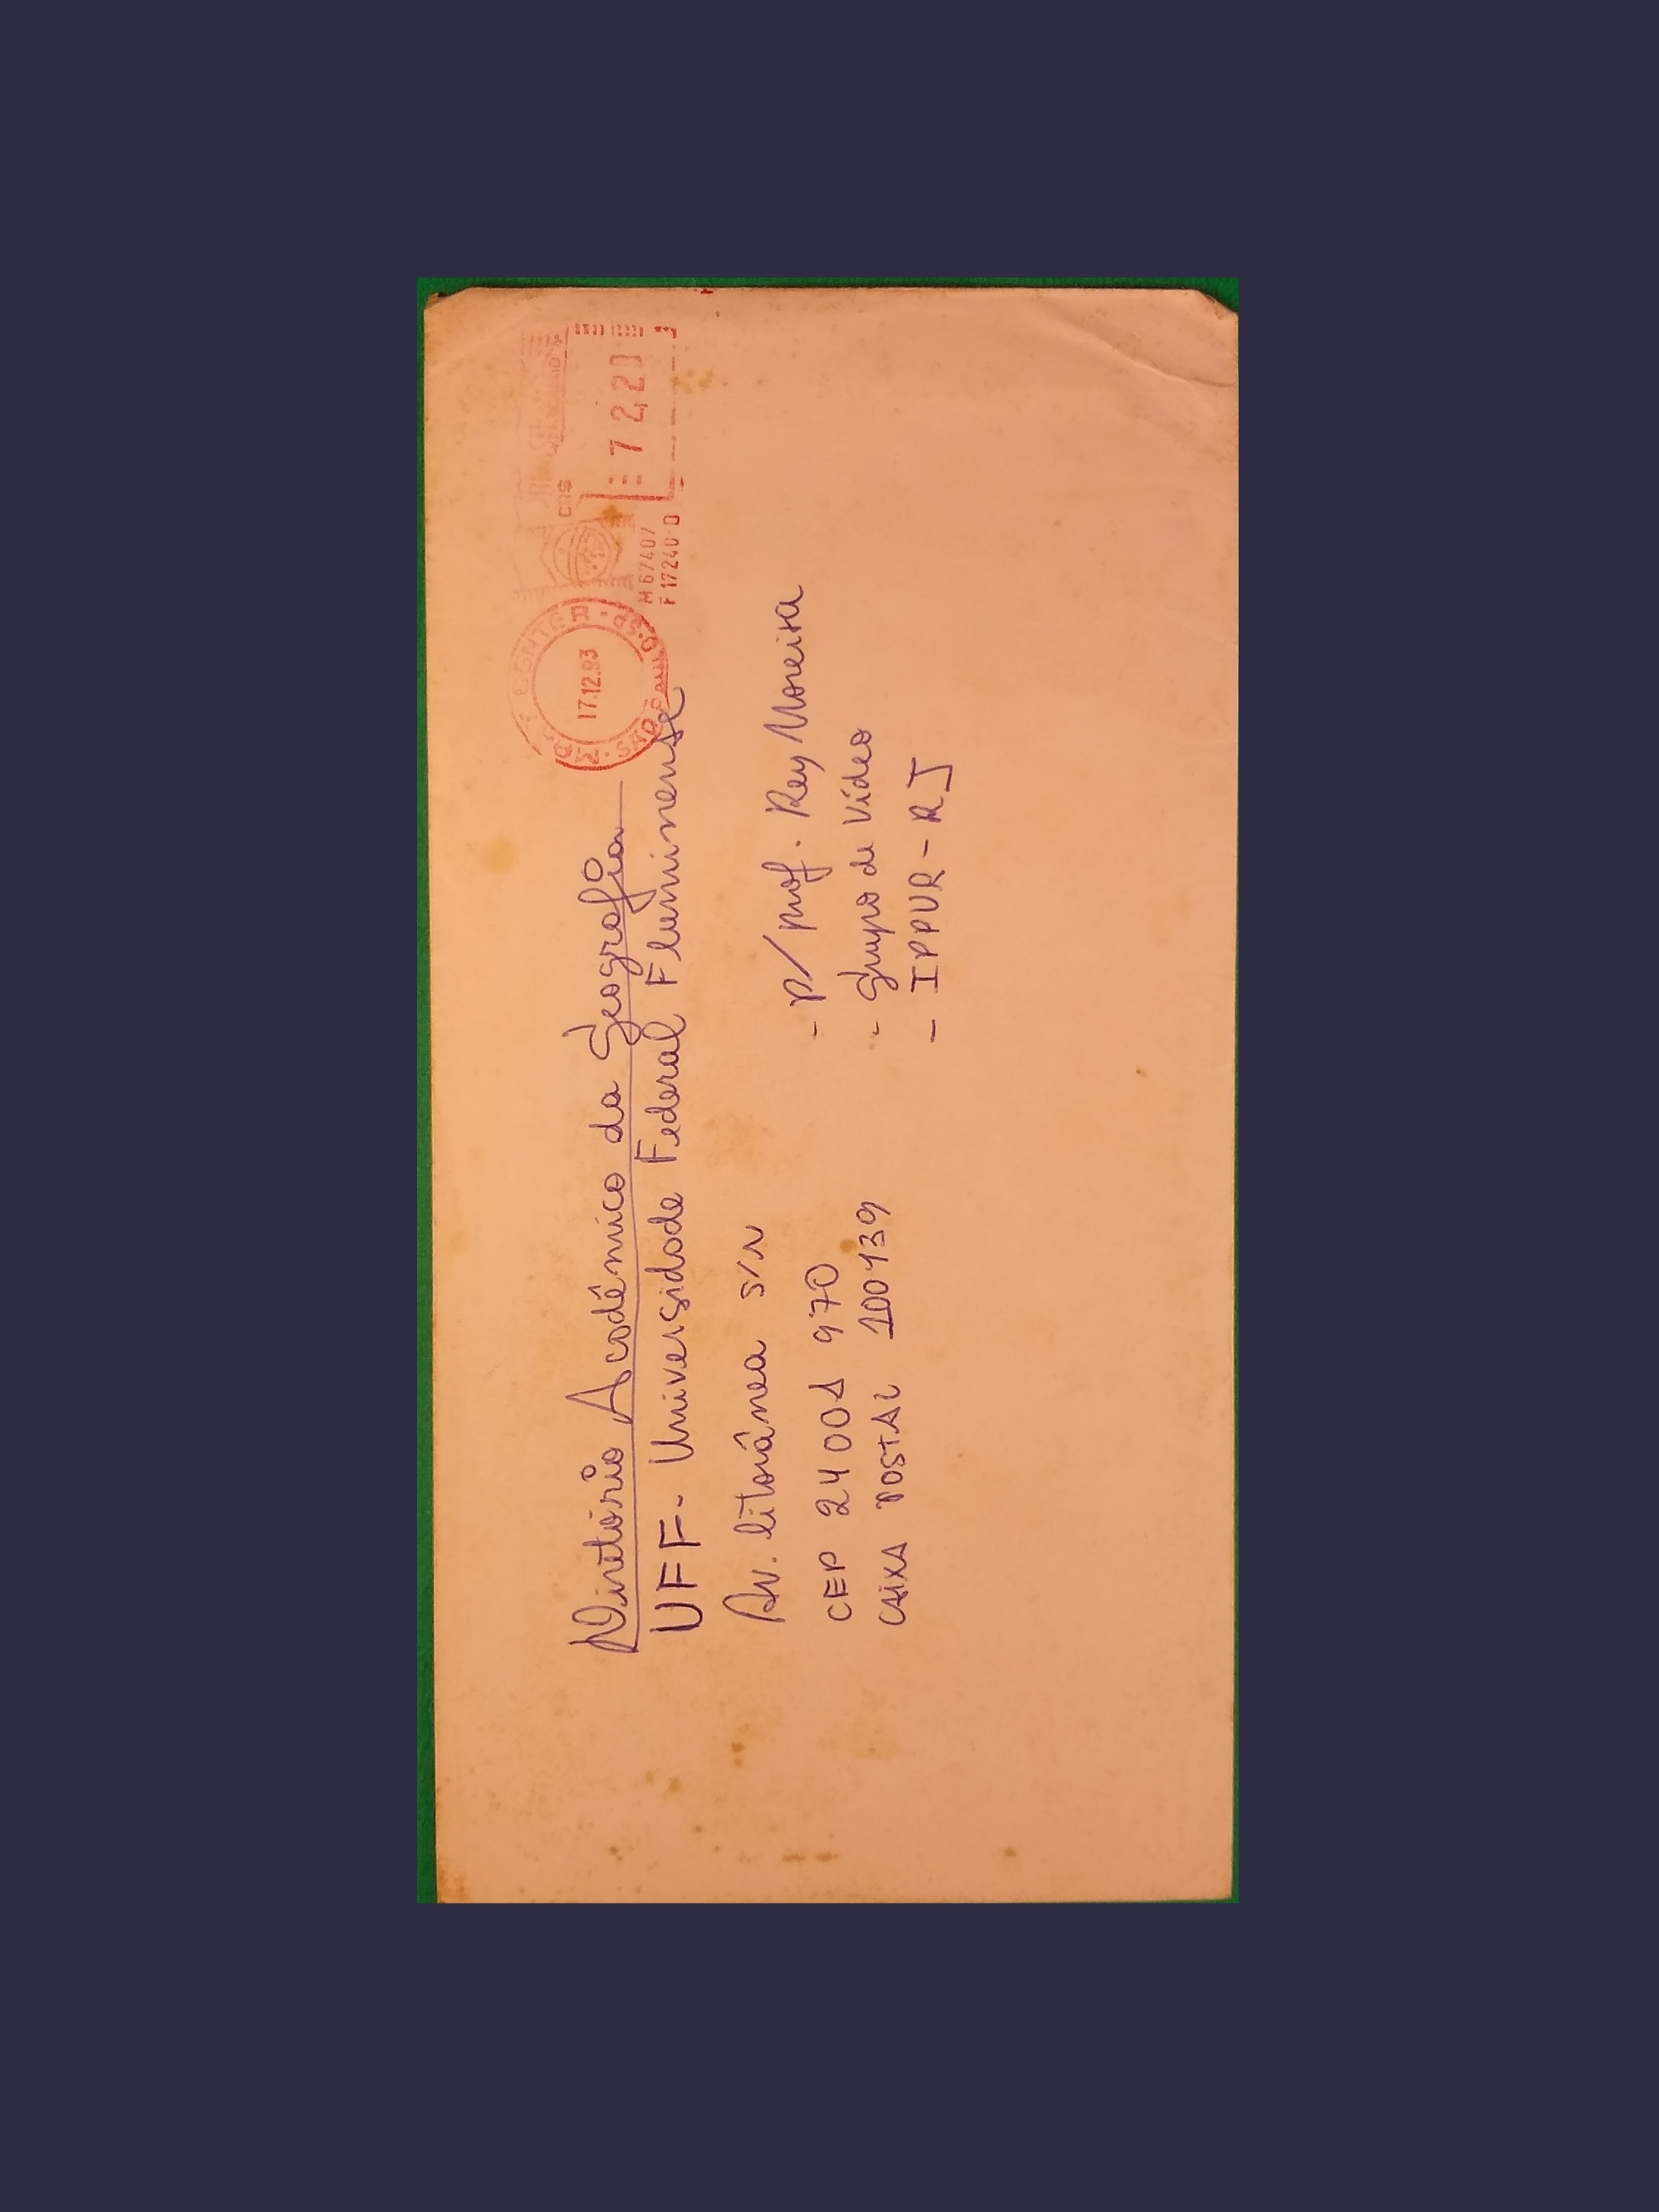 CR$
72,20
17.12.93
SÃO PAULO-SP
M 67407
F 17240-0
Diretório Acadêmico da Geografia
UFF - Universidade Federal Fluminense
Av. litorânea s/n
CEP 24001 970
CAIXA POSTAL 100139
- p/ prof. Rey Moreira
- Grupo de Vídeo
- IPPUR - RJ